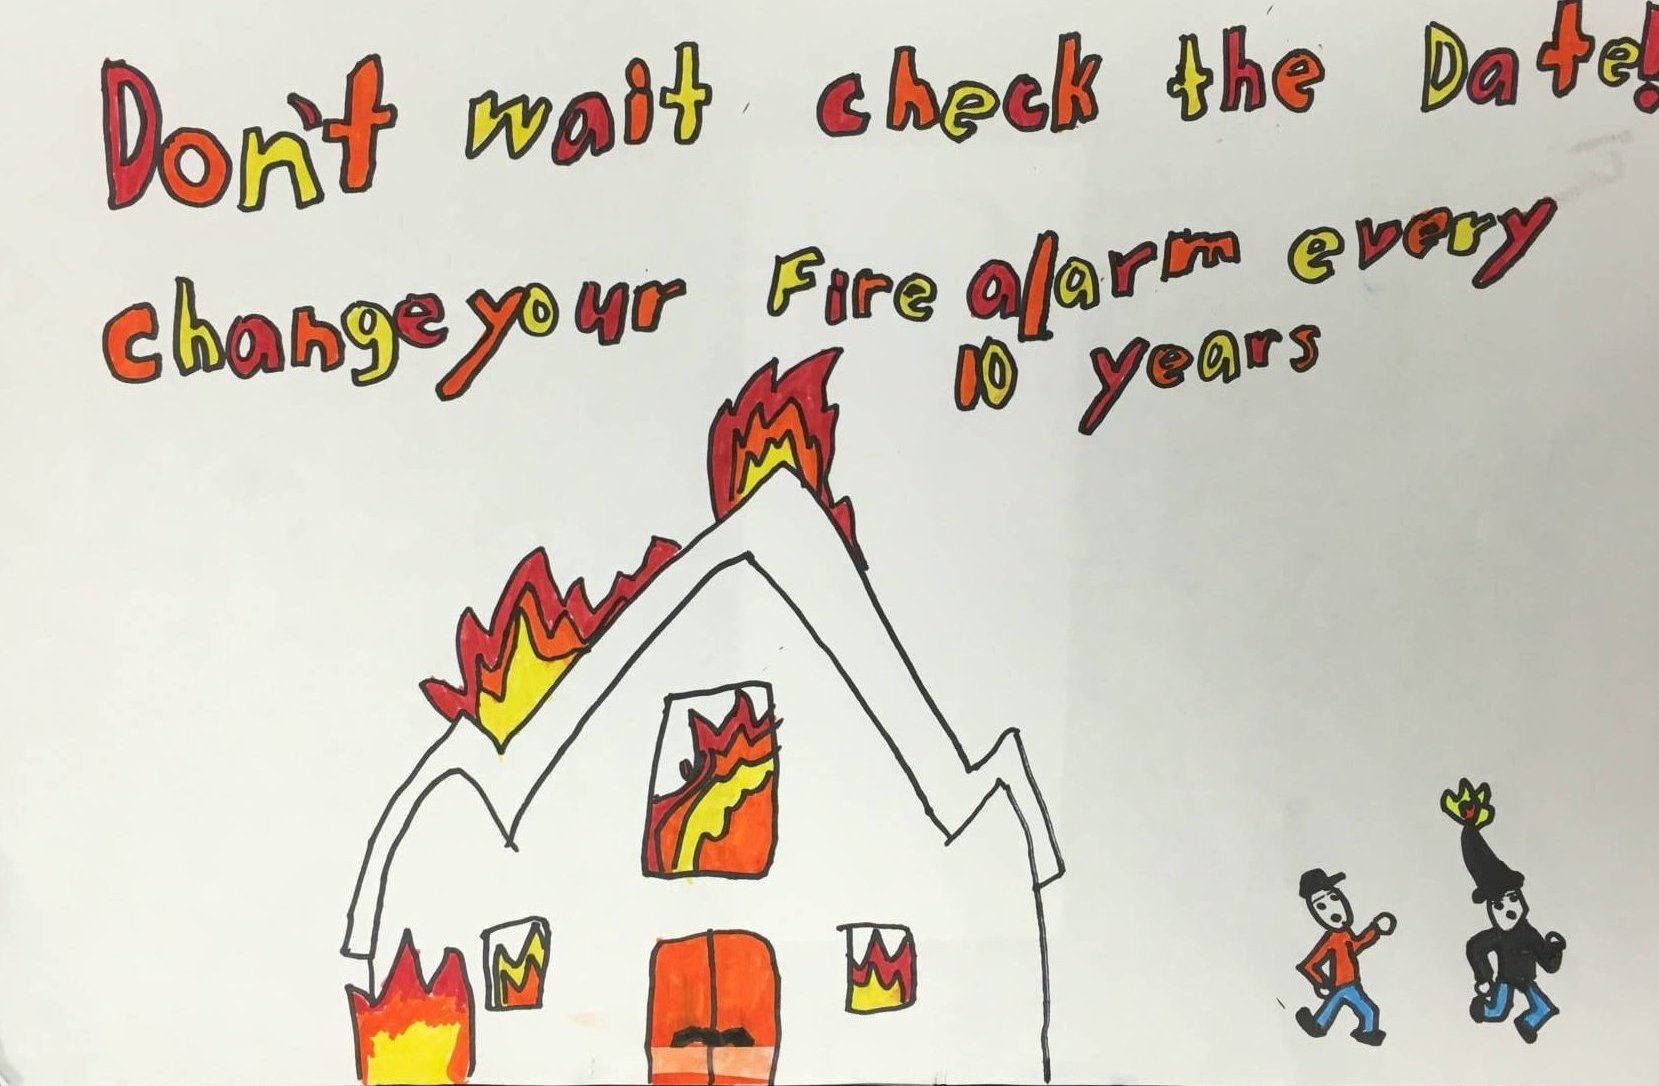 Don't wait check the Date!
change your Fire alarm every
10 years